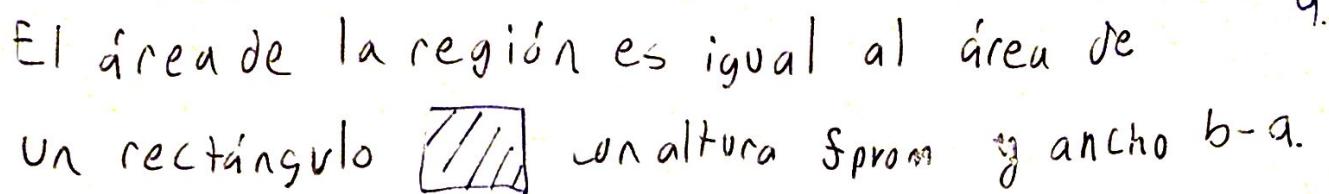 El área de la región es igual al área de
un rectángulo con altura fprom y ancho b-a.